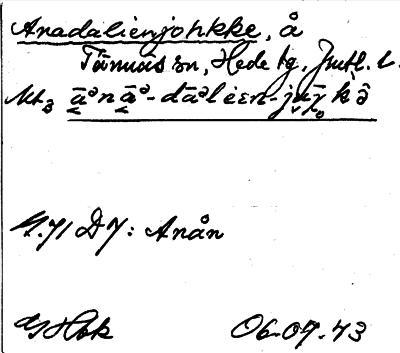 Anadalienjohkke, å
Tännäs sn, Hede tg, Jmtl. l.
Mt3 ā̬ᵊnā̬ᵊ-dāᵊlėɛn-
G.71 D7: Anån
06.07.73